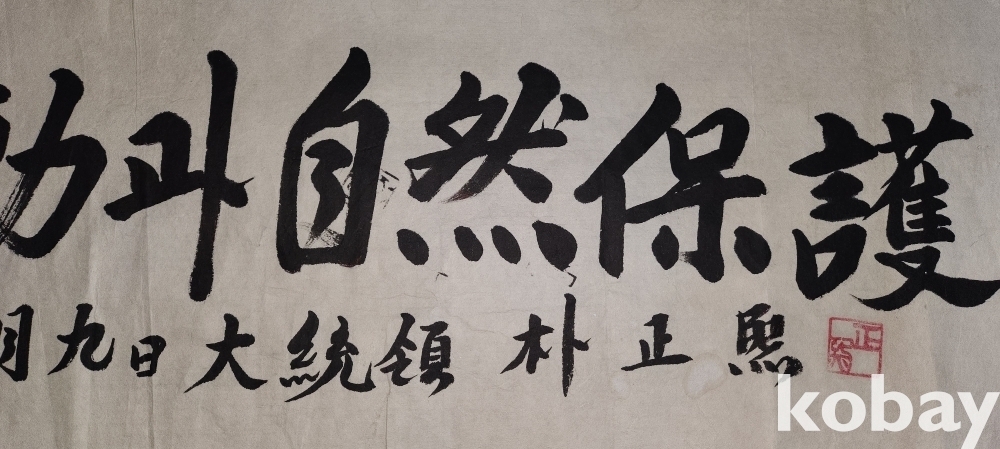 과自然保護
月九日 大統領 朴正熙
kobay